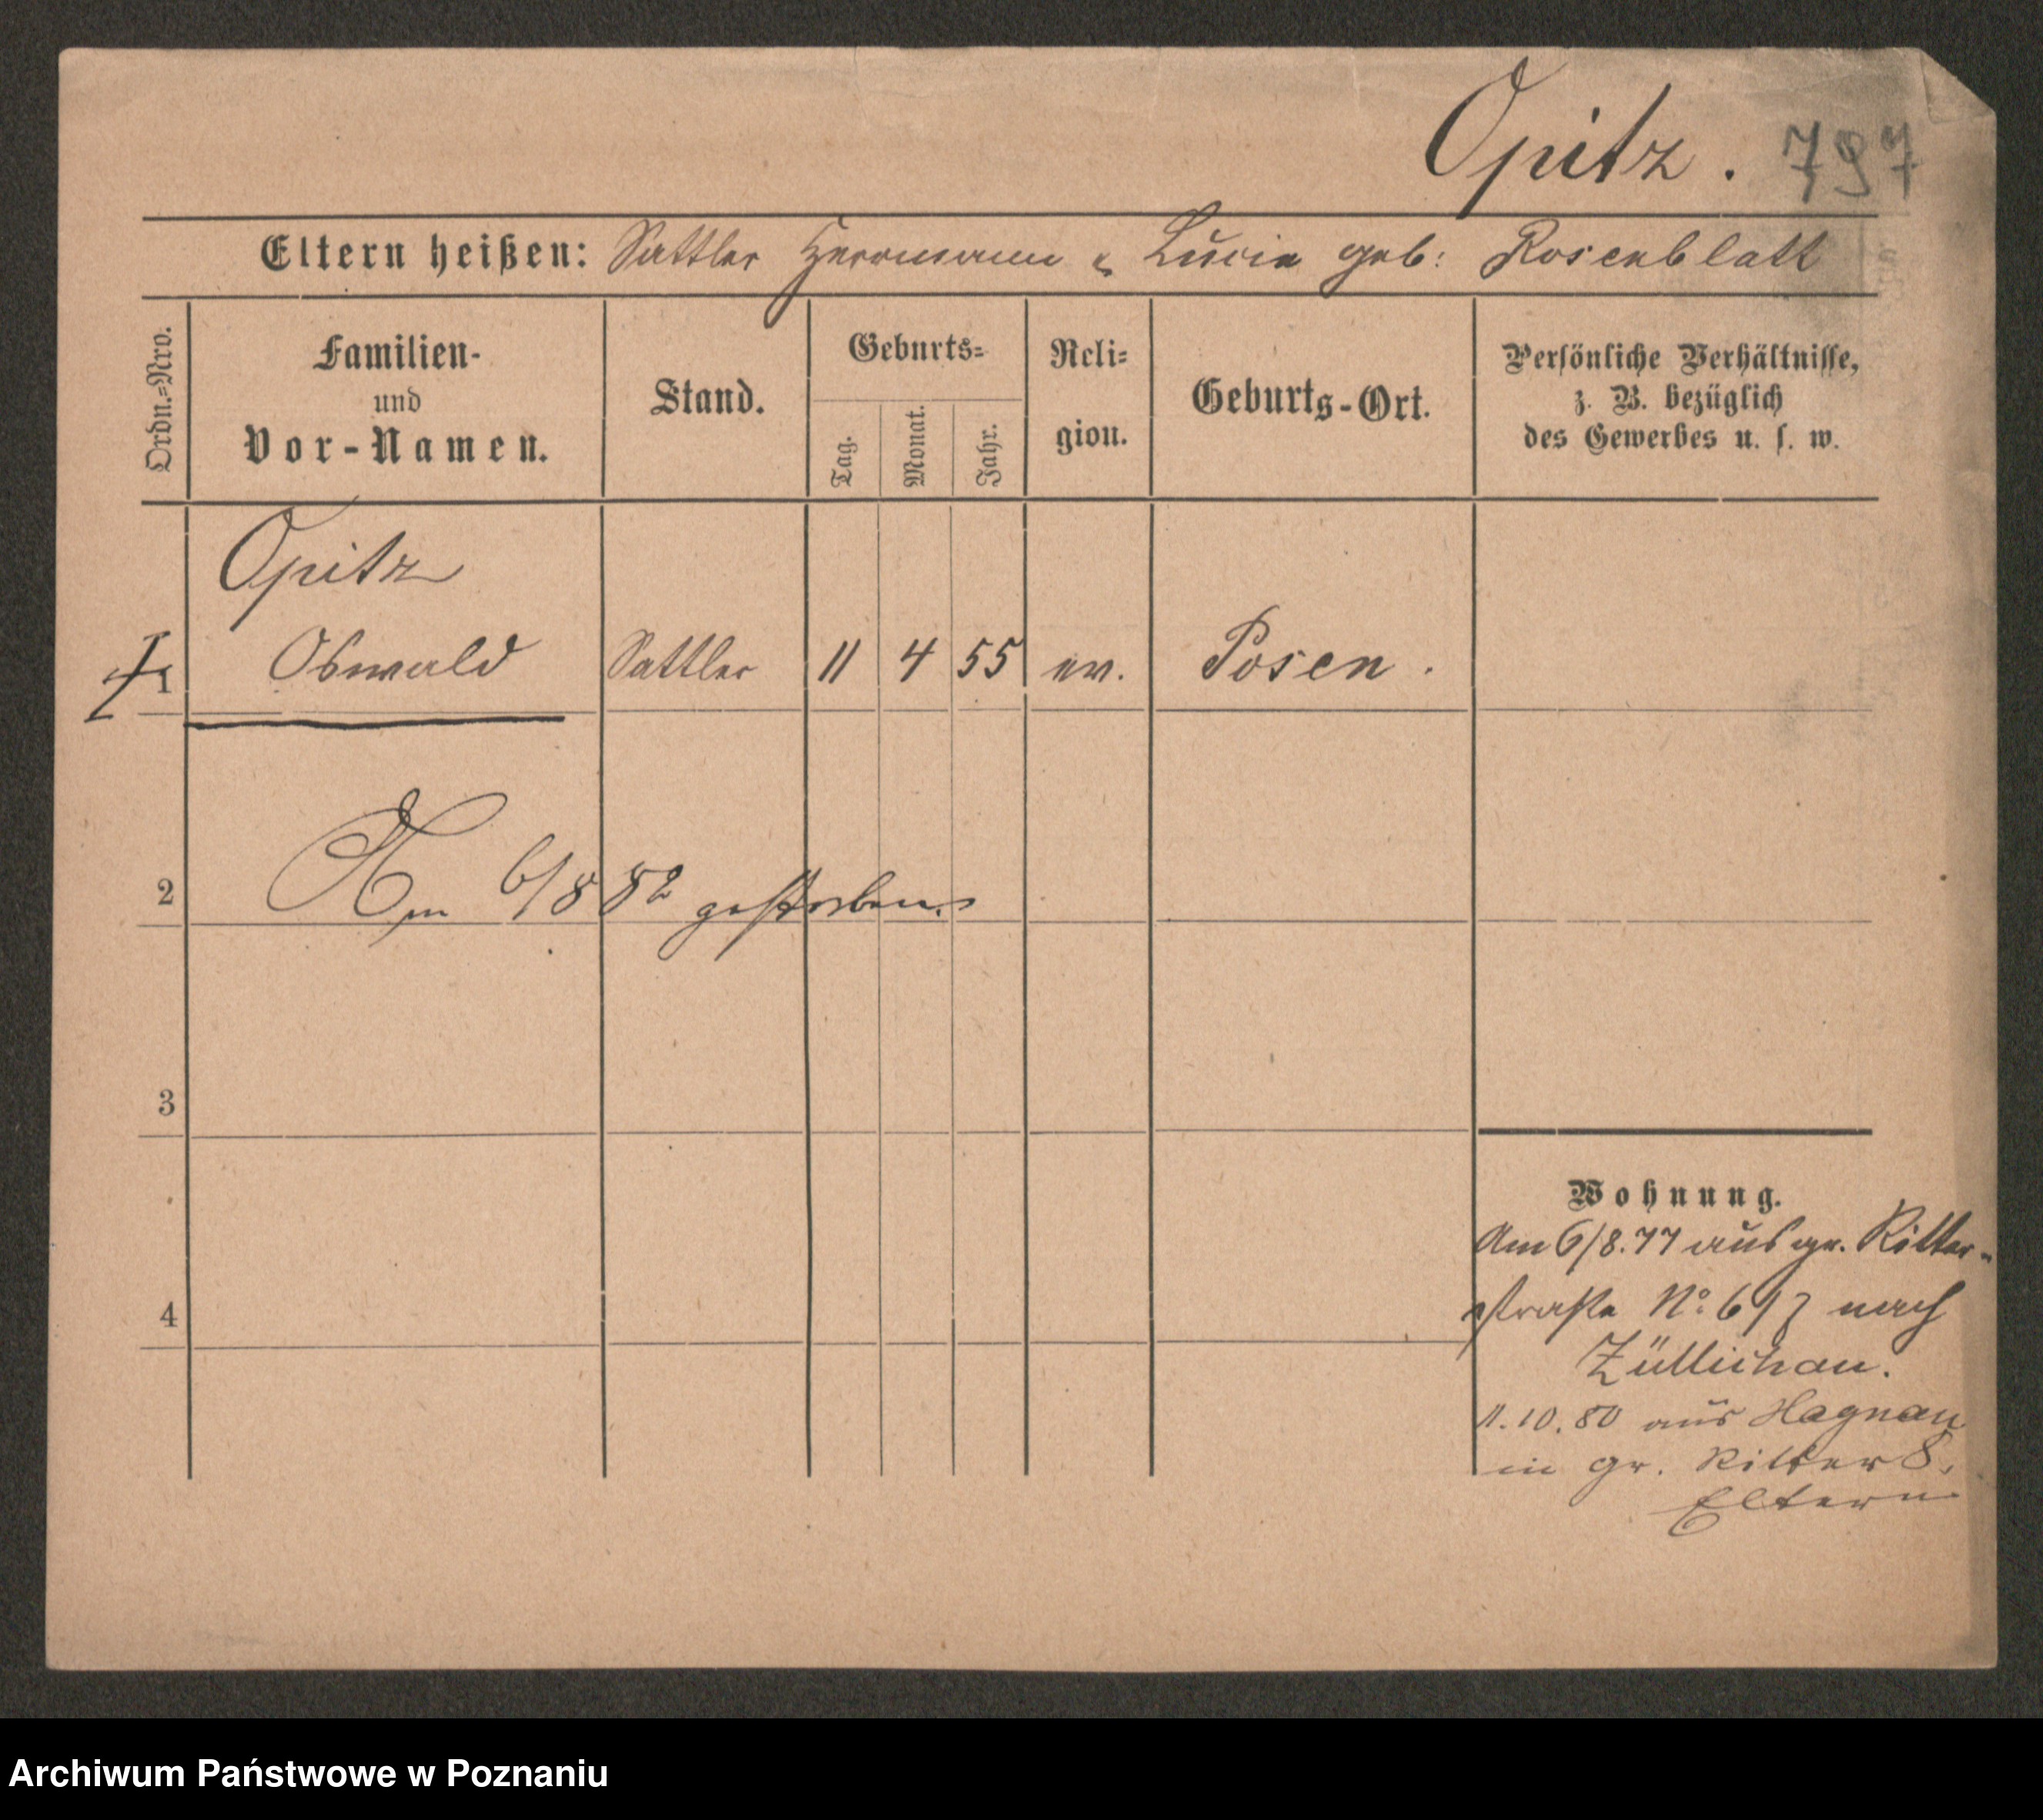 Opitz. 797
Eltern heißen: Sattler Herrmann & Lucie geb: Rosenblatt
Ordn.=Nro.
Familien-
und
Vor-Namen.
Stand.
Geburts=
Tag.
Monat.
Jahr.
Reli=
gion.
Geburts-Ort.
Persönliche Verhältnisse,
z. B. bezüglich
des Gewerbes u. s. w.
Opitz
1 Oswald Sattler 11 4 55 ev. Posen.
2 Am 6/8 82 gestorben.
3
Wohnung.
Am 6/8.77 aus gr. Ritter-
straße No 6/7 nach
4
Züllichau.
11.10.80 aus Hagnau
in gr. Ritter 8.
Eltern
Archiwum Państwowe w Poznaniu